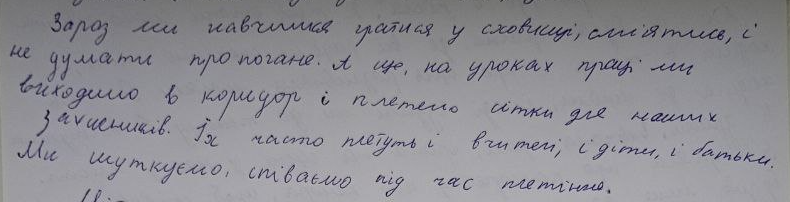 Зараз ми навчилися гратися у сховищі, сміятись, і
не думати про погане. А ще, на уроках праці ми
виходимо в коридор і плетемо сітки для наших
захисників. Їх часто плетуть і вчителі, і діти, і батьки.
Ми шуткуємо, співаємо під час плетіння.